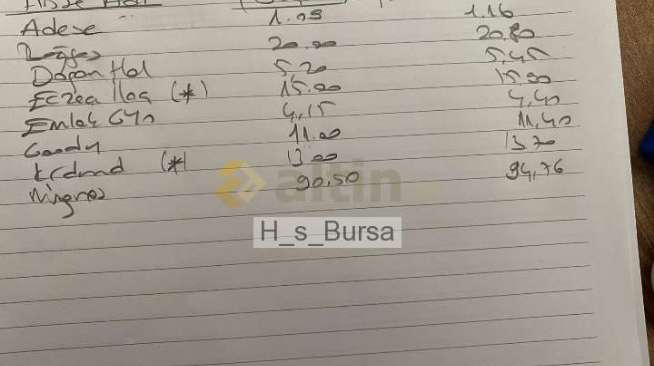 Hisse Adı
Adese 1.09 1.16
20.00 20.80
Doğan Hol 5,20 5,45
Eczea Ilaç (*) 15.00 15.90
Emlak GYO 4,15 4,40
Goody 11.00 11,40
Krdmd (*) 13.00 13.70
Migros 90,50 94,76
altin
H_s_Bursa